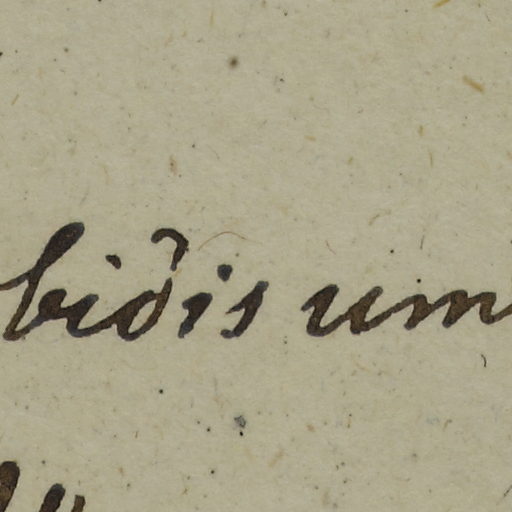 bidis um